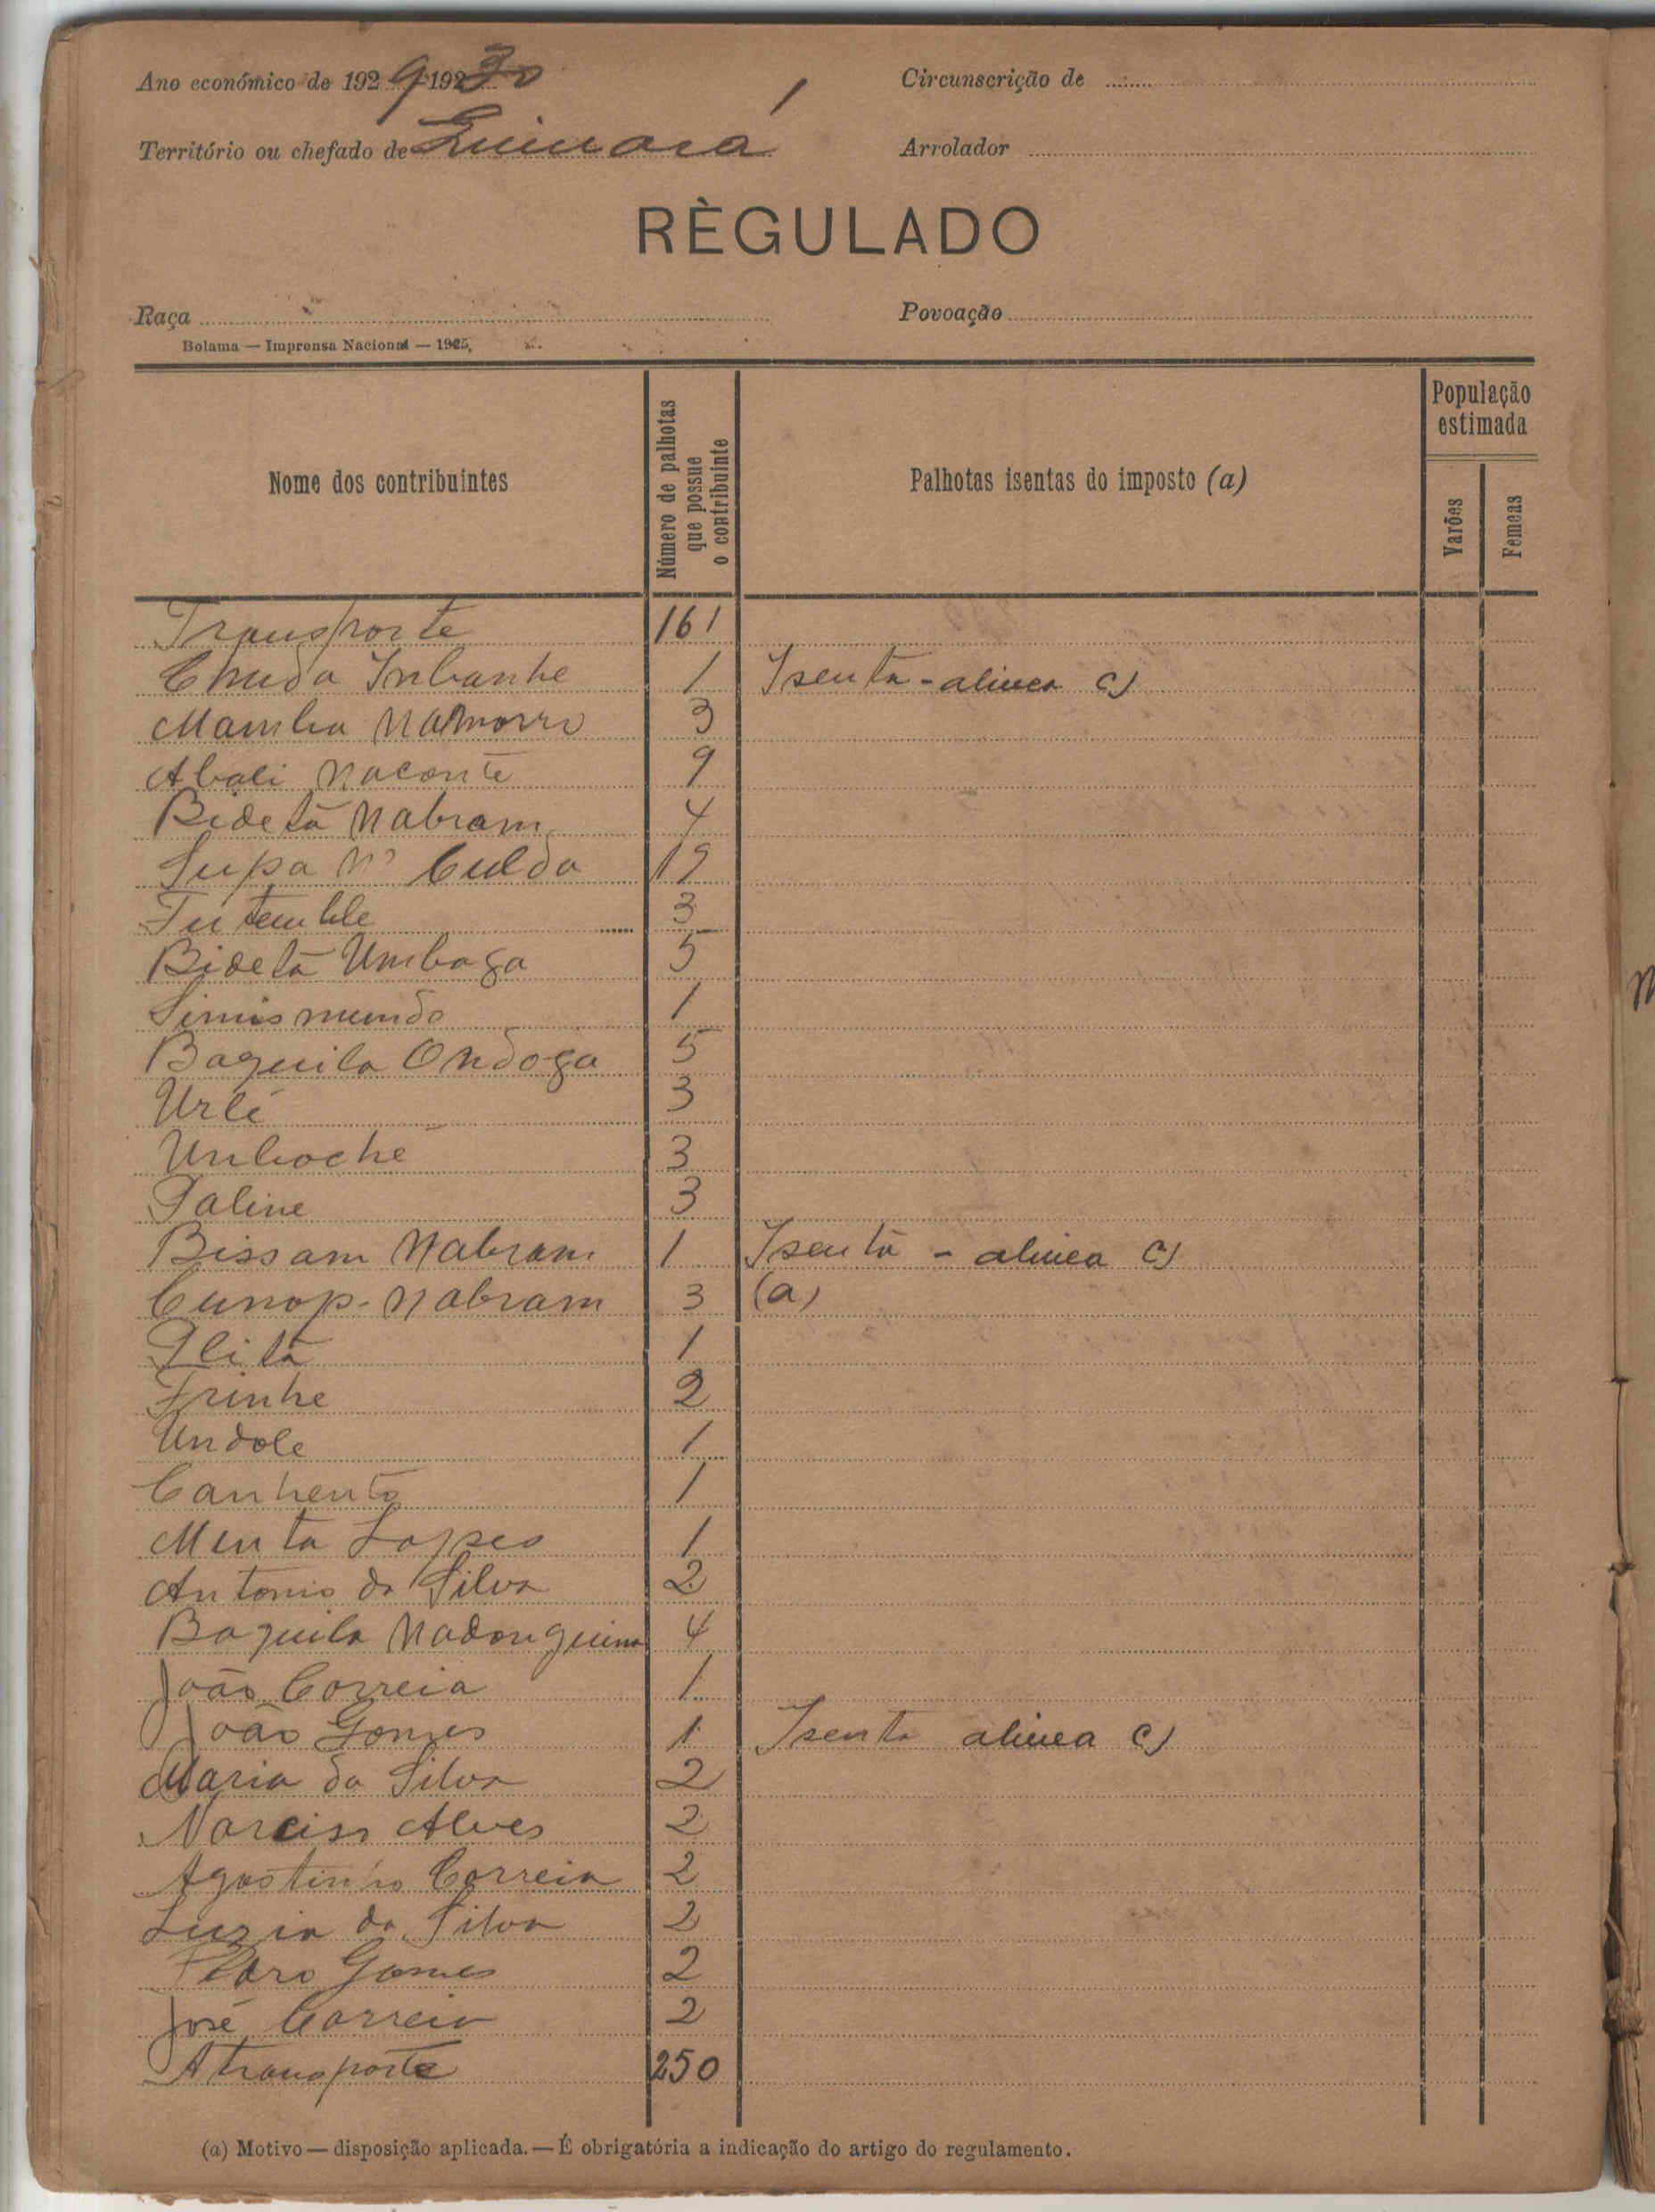 Ano económico de 1929-1930
Circunscrição de
Território ou chefado de Quinará
Arrolador
RÈGULADO
Raça
Povoação
Bolama — Imprensa Nacional — 1925,
Nome dos contribuintes
Número de palhotas que possue o contribuinte
Palhotas isentas do imposto (a)
População estimada
Varões
Femeas
Transporte 161
Chuda Inbanhe 1 Isenta - alinea c)
Mamba Namorro 3
Abali Naconte 9
Bidetà Nabram 4
Supa N' Culda 19
Tu temble 3
Bidetà Umbaga 5
Simis mundo 1
Baquila Ondoga 5
Urlé 3
Unboché 3
Paline 3
Bissam Nabram 1 Isenta - alinea c)
Cunop- Nabram 3 (a)
Plità 1
Frinhe 2
Undole 1
Canhento 1
Menta Lopes 1
Antonio da Silva 2
Baquila Nadonguina 4
João Correia 1
João Gomes 1 Isenta alinea c)
Maria da Silva 2
Narciso Alves 2
Agostinho Correia 2
Luzia da Silva 2
Pedro Gomes 2
José Correia 2
A transporte 250
(a) Motivo — disposição aplicada. — É obrigatória a indicação do artigo do regulamento.